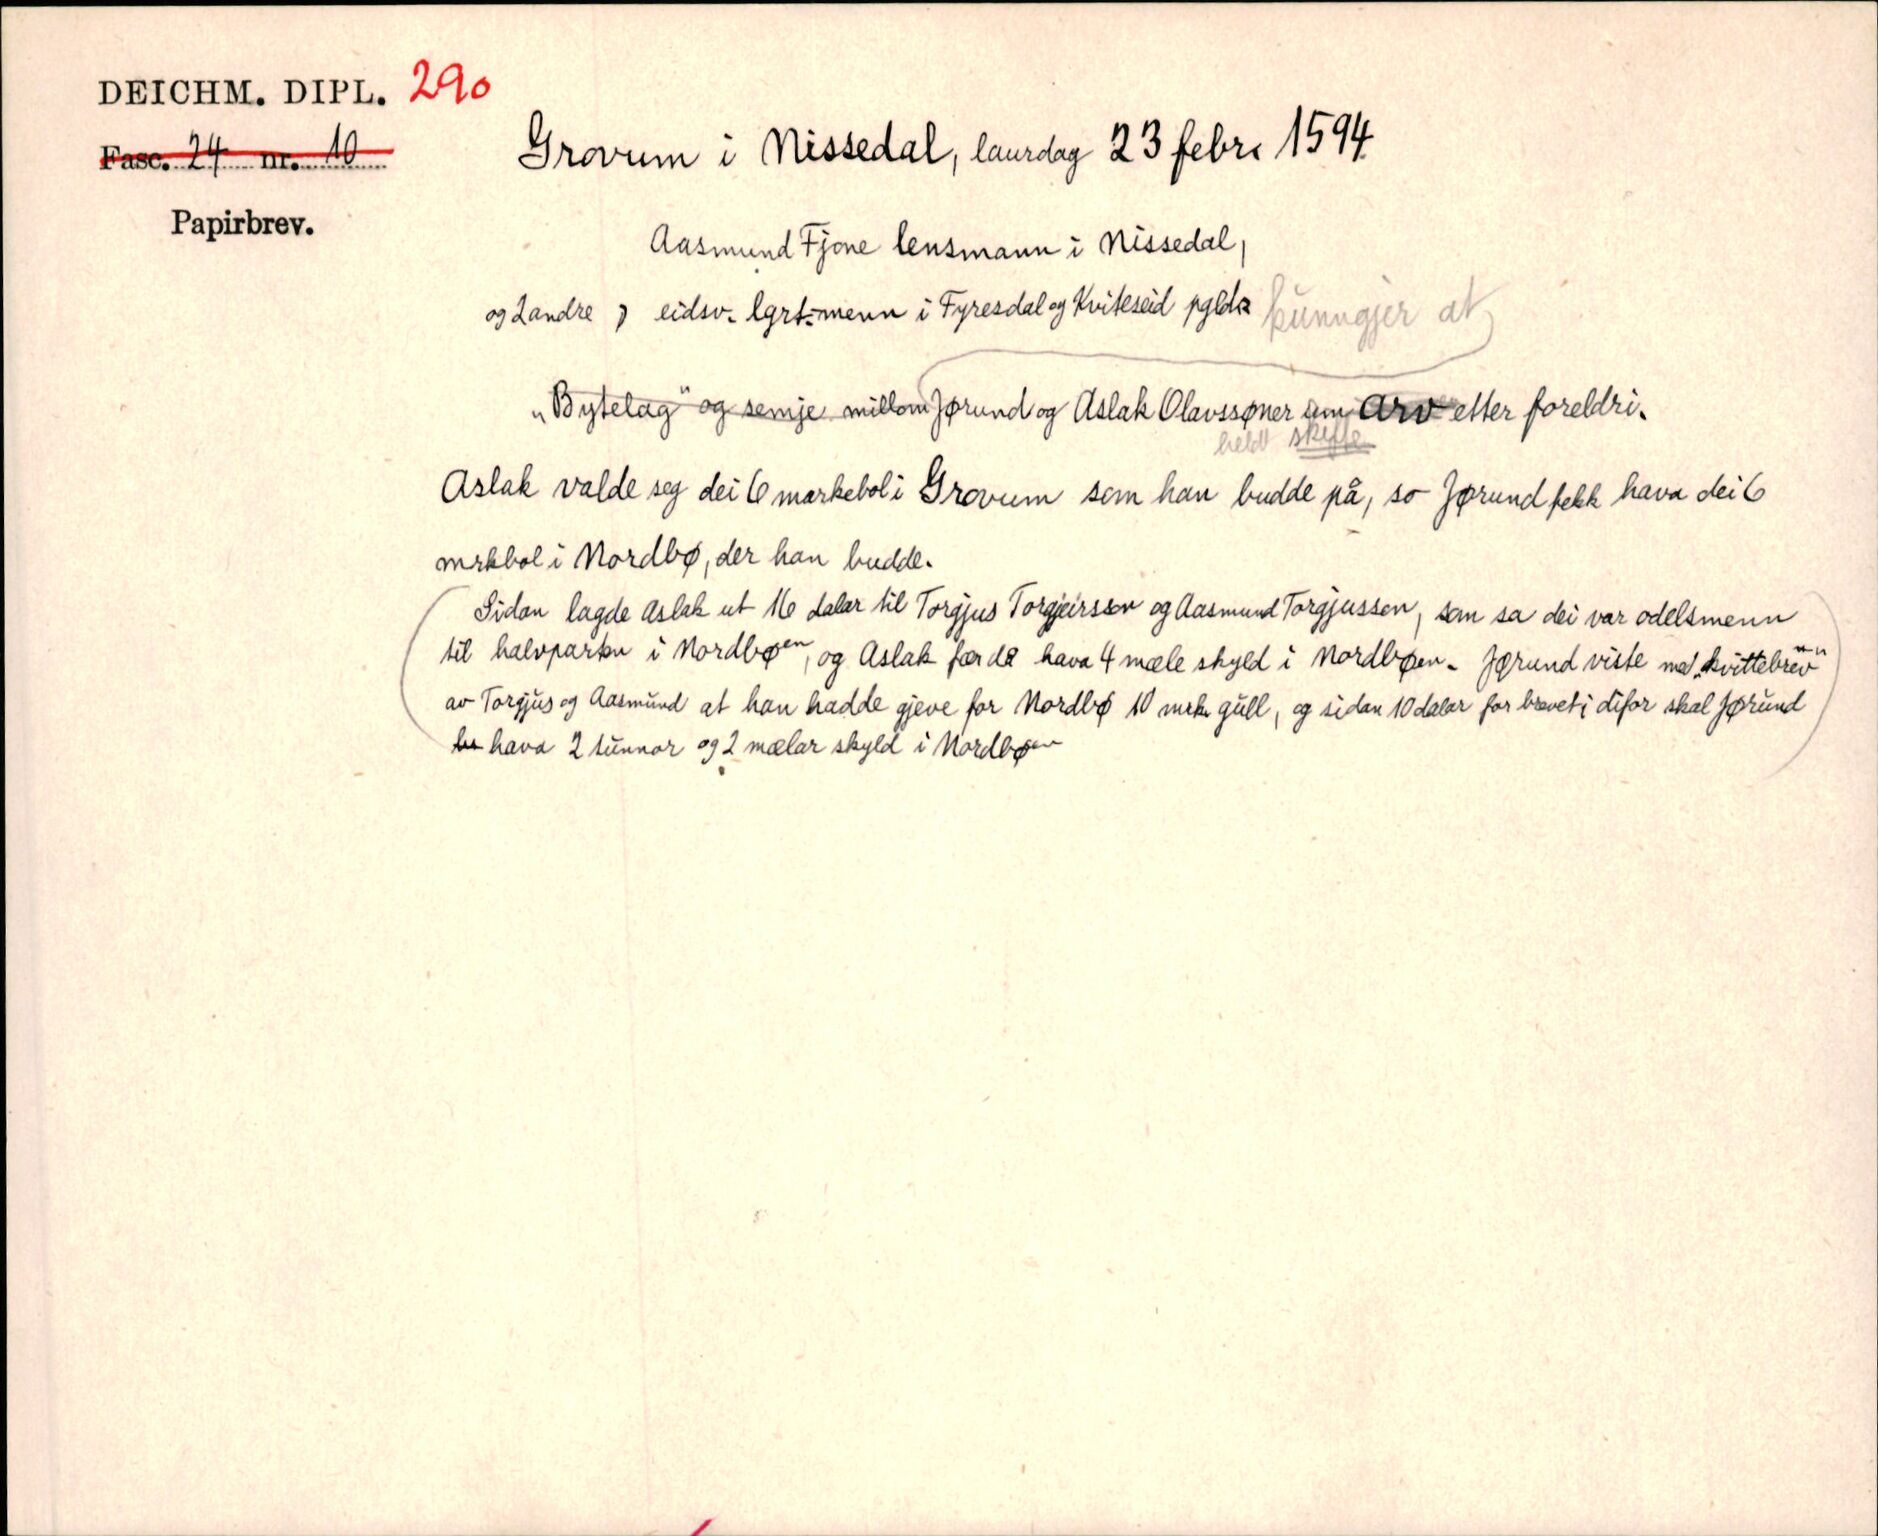 DEICHM. DIPL. 290
Fasc. 24 nr. 10
Papirbrev.
Grovum i Nissedal, laurdag 23 febr. 1594
Aasmund Fjone lensmann i Nissedal,
og 2 andre, eidsv. lgrt.menn i Fyresdal og Kviteseid pgld. kunngjer at
„Bytelag" og semje millom Jørund og Aslak Olavssøner um arv etter foreldri.
heldt skifte
Aslak valde seg dei 6 markebol i Grovum som han budde på, so Jørund fekk hava dei 6
mrkbol i Nordbø, der han budde.
Sidan lagde Aslak ut 16 dalar til Torgjus Torgjeirsson og Aasmund Torgjussen, som sa dei var odelsmenn
til halvparten i Nordbøen, og Aslak fær då hava 4 mæle skyld i Nordbøen. Jørund viste med „kvittebrev"
av Torgjus og Aasmund at han hadde gjeve for Nordbø 10 mrk. gull, og sidan 10 dalar for brevet; difor skal Jørund
hava 2 tunnor og 2 mælar skyld i Nordbøen